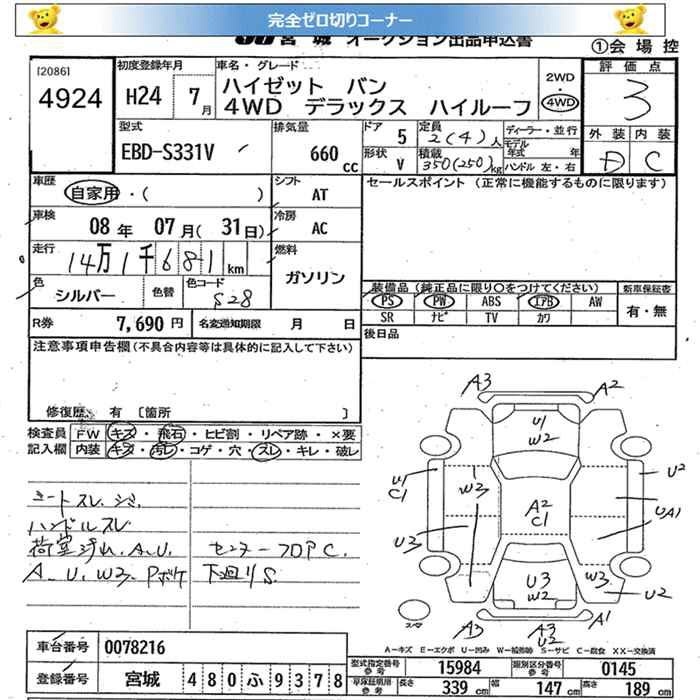 完全ゼロ切りコーナー
JU 宮城 オークション出品申込書
①会場控
[2086]
4924
初度登録年月
H24 7月
車名・グレード
ハイゼット バン
4WD デラックス ハイルーフ
2WD
4WD
評価点
3
外装 内装
D C
型式
EBD-S331V
排気量
660 cc
ドア 5
形状 V
定員 2(4)人
積載 350(250)kg
ディーラー・並行
モデル年式 年
ハンドル 左・右
車歴
自家用・( )
シフト
AT
車検
08年 07月(31日)
冷房
AC
走行
14万1千681km
燃料
ガソリン
色
シルバー
色替
色コード
S28
R券 7,690円
名変通知期限 月 日
セールスポイント(正常に機能するものに限ります)
装備品(純正品に限り○をつけてください)
PS PW ABS エアB AW
SR ナビ TV カワ
新車保証書
有・無
後日品
注意事項申告欄(不具合内容等は具体的に記入して下さい)
修復歴 有 [箇所 ]
検査員記入欄
FW キズ・飛石・ヒビ割・リペア跡・×要
内装 キズ・汚レ・コゲ・穴・スレ・キレ・破レ
シートスレ、シミ
ハンドルスレ
荷室汚れ、A、U、
A、U、W3、Pボケ
センターフロアC
下廻りS
A3 A2
U1
W2
U1
C1
W3
U2
A2
C1
UA1
U3
U3
W2
W3
U2
A3
A3
U2
A1
スペア
A-キズ E-エクボ U-凹み W-補修跡 S-サビ C-腐食 XX-交換済
車台番号 0078216
登録番号 宮城 480ふ9378
型式指定番号 参考 15984
類別区分番号 参考 0145
車庫証明用 参考
長さ 339cm
幅 147cm
高さ 189cm